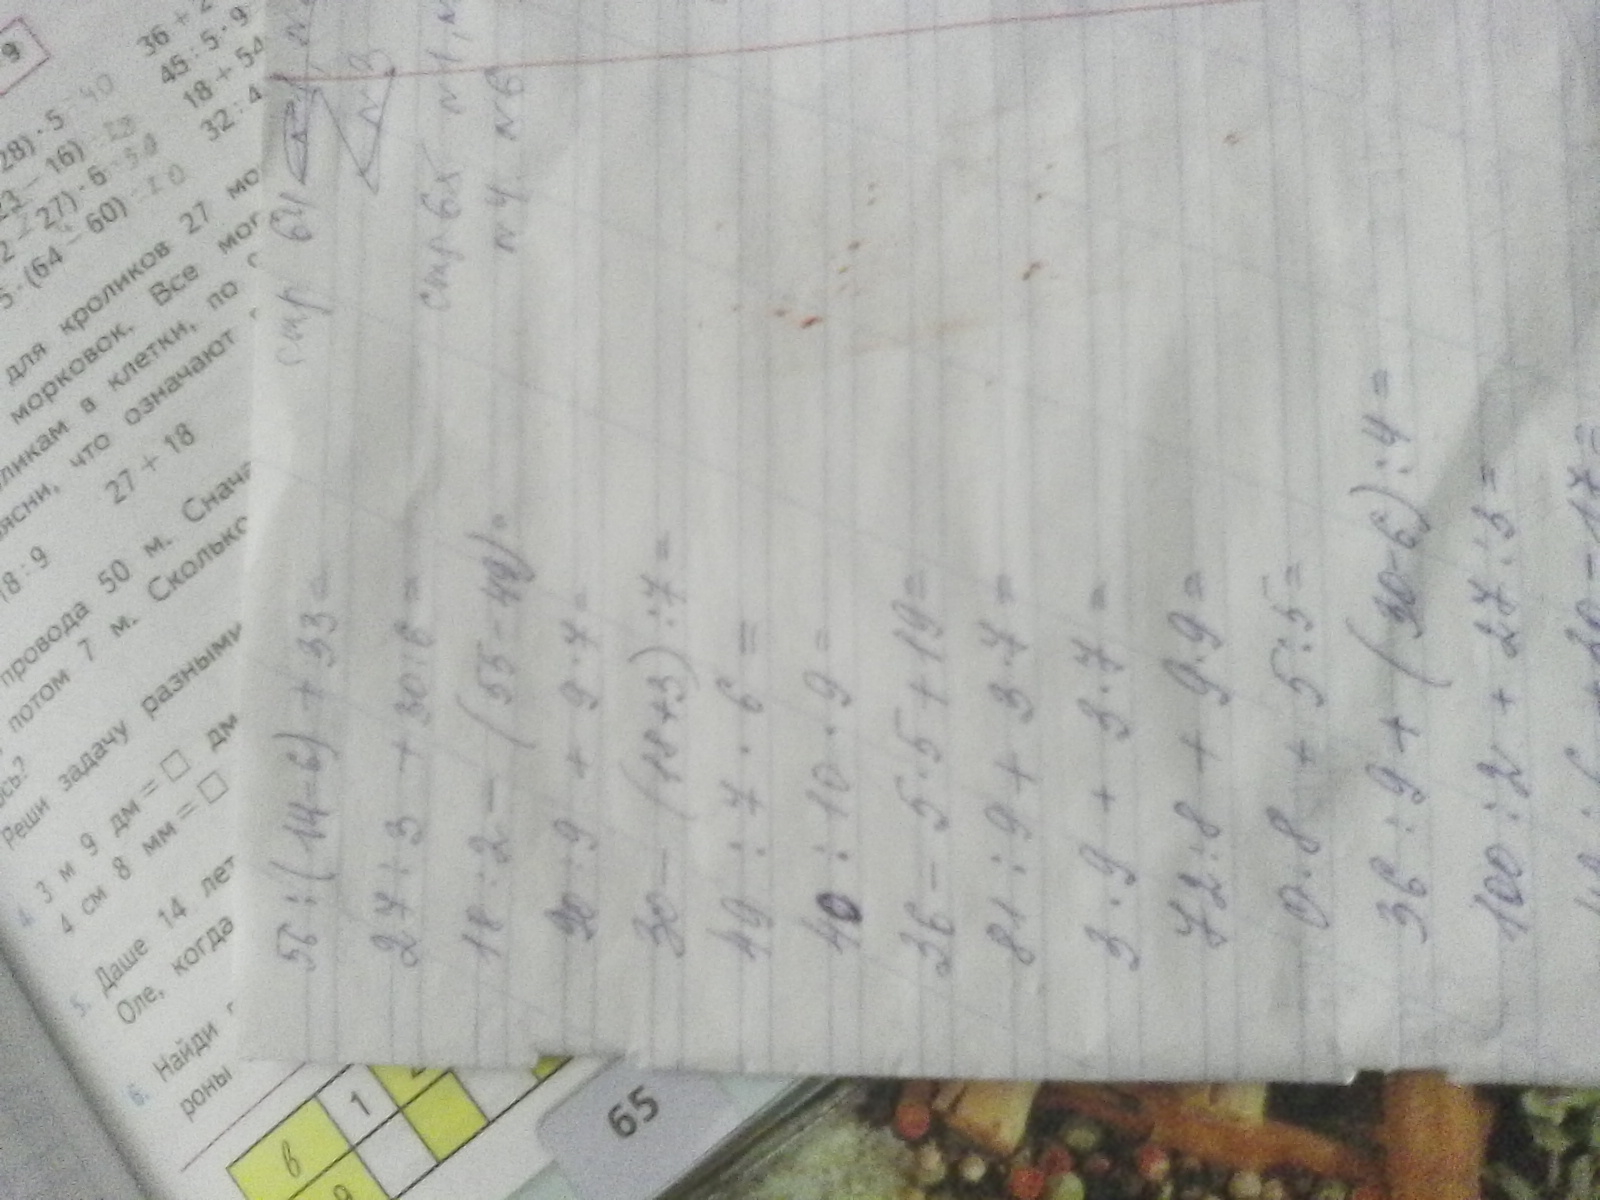 стр 64
№3
стр 65 №1, №
№4 №6
56 : (14-6) + 33 =
27 : 3 + 30 : 6 =
18 : 2 - (55-49) =
90 : 9 + 9 · 7 =
30 - (18+3) : 7 =
49 : 7 · 6 =
40 : 10 · 9 =
36 - 5 · 5 + 19 =
81 : 9 + 3 · 7 =
3 · 9 + 3 · 7 =
72 : 8 + 9 · 9 =
0 : 8 + 5 : 5 =
36 : 9 + (30-6) : 4 =
100 : 2 + 27 : 3 =
9
28) · 5 40
23 – 16)
2 – 27) · 6
5 · (64 – 60)
36 + 2
45 : 5 · 9
18 + 54
32 : 4
для кроликов 27 мо
морковок. Все мор
ликам в клетки, по
ясни, что означают
18 : 9 27 + 18
провода 50 м. Снача
потом 7 м. Сколько
ось?
Реши задачу разными
4. 3 м 9 дм = □ дм
4 см 8 мм = □
5. Даше 14 лет
Оле, когда
6. Найди
роны
в 1
9
65